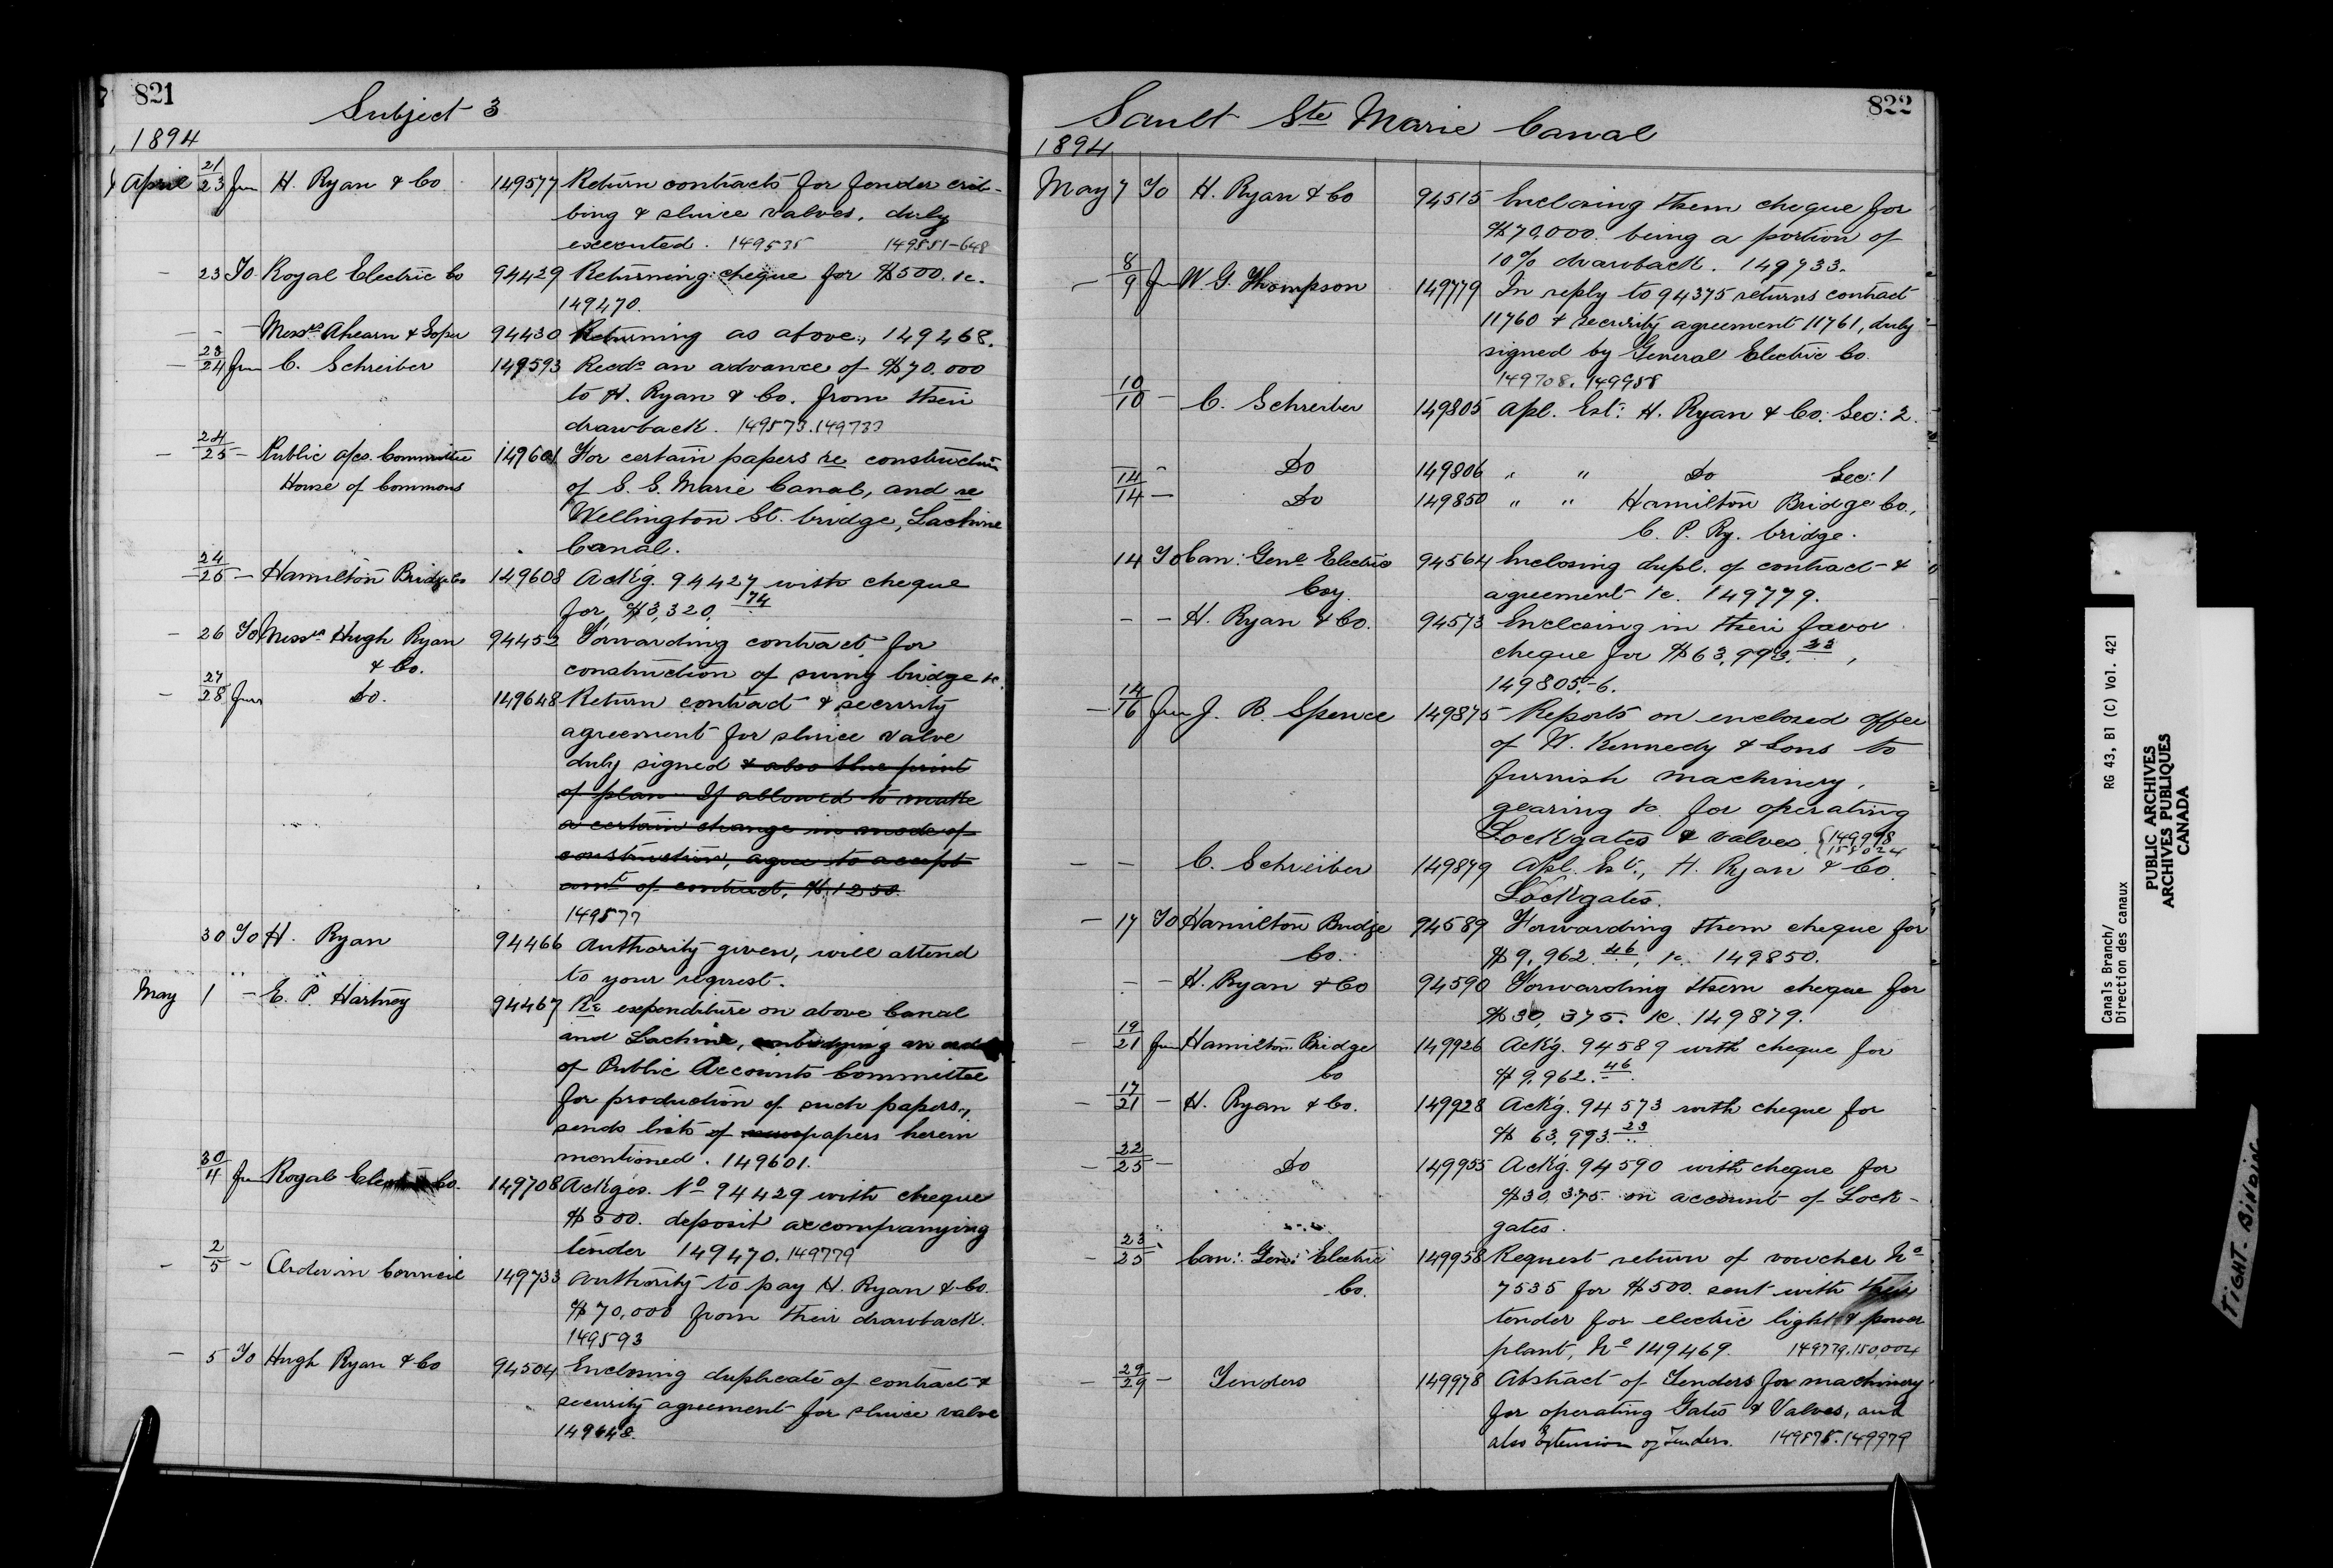 821
Subject 3
1894
April 21/23 frm H. Ryan & Co 149577 Return contracts for fender crib-
bing & sluice valves, duly
executed. 149535 149551-648
- 23 To Royal Electric Co 94429 Returning cheque for $500. &c.
149470.
- - - Messrs Ahearn & Soper 94430 Returning as above, 149468.
- 23/24 frm C. Schreiber 149593 Reeds an advance of $70.000
to H. Ryan & Co. from their
drawback. 149573.149733
- 24/25 - Public a/cs. Committee 149601 For certain papers re construction
House of Commons of S. S. Marie Canal, and re
Wellington St. bridge, Lachine
Canal.
24/25 - Hamilton Bridge Co 149608 Ackg. 94427 with cheque
for $3,320.74
- 26 To Messrs Hugh Ryan 94452 Forwarding contract for
& Co. construction of swing bridge &c.
- 27/28 frm Do. 149648 Return contract & security
agreement for sluice valve
duly signed & also blue print
of plan. If allowed to make
a certain change in mode of
construction, agree to accept
amt of contract, $1250.
149577
30 To H. Ryan 94466 Authority given, will attend
to your request.
May 1 - E. P. Hartney 94467 Re expenditure on above Canal
and Lachine, embodying an order
of Public Accounts Committee
for production of such papers.,
sends lists of papers herein
mentioned. 149601.
30/4 frm Royal Electric Co. 149708 Ackges. No 94429 with cheque
$500. deposit accompanying
tender 149470. 149779
- 2/5 - Order in Council 149733 Authority to pay H. Ryan & Co.
$70,000 from their drawback.
149593
- 5 To Hugh Ryan & Co 94504 Enclosing duplicate of contract &
security agreement for sluice valve
149648.
822
Sault Ste Marie Canal
1894
May 7 To H. Ryan & Co 94515 Enclosing them cheque for
$70,000. being a portion of
10% drawback. 149733.
- 8/9 frm W. G. Thompson 149779 In reply to 94375 returns contract
11760 & security agreement 11761, duly
signed by General Electric Co.
149708. 149958
10/10 - C. Schreiber 149805 Apl. Est: H. Ryan & Co. Sec: 2.
- Do 149806 " " Do Sec: 1
14/14 - Do 149850 " " Hamilton Bridge Co.,
C. P. Ry. bridge.
14 To Can: Genl Electric 94564 Enclosing dupl. of contract &
Coy. agreement &c. 149779.
- - H. Ryan & Co. 94573 Enclosing in their favor
cheque for $63,993.23,
149805-6.
- 14/16 frm J. B. Spence 149875 Reports on enclosed offer
of W. Kennedy & Sons to
furnish machinery,
gearing &c for operating
Lockgates & valves. {149978
- - C. Schreiber 149879 Apl. Est., H. Ryan & Co.
Lockgates.
- 17 To Hamilton Bridge 94589 Forwarding them cheque for
Co. $9,962.46, &c. 149850.
- - H. Ryan & Co 94590 Forwarding them cheque for
$30,375. &c. 149879.
- 19/21 frm Hamilton Bridge 149926 Ackg. 94589 with cheque for
Co $9,962.46.
- 17/21 - H. Ryan & Co. 149928 Ackg. 94573 with cheque for
$ 63,993.23
- 22/25 - Do 149955 Ackg. 94590 with cheque for
$30,375. on account of Lock-
gates.
- 23/25 Can: Genl Electric 149958 Request return of voucher No
Co. 7535 for $500. sent with their
tender for electric light & power
plant, No 149469. 149779.150,004
- 29/29 - Tenders 149978 Abstract of Tenders for machinery
for operating Gates & Valves, and
also Extension of Tenders. 149875.149979
Canals Branch/ RG 43, B1 (C) Vol. 421
Direction des canaux
PUBLIC ARCHIVES
ARCHIVES PUBLIQUES
CANADA
TIGHT BINDING